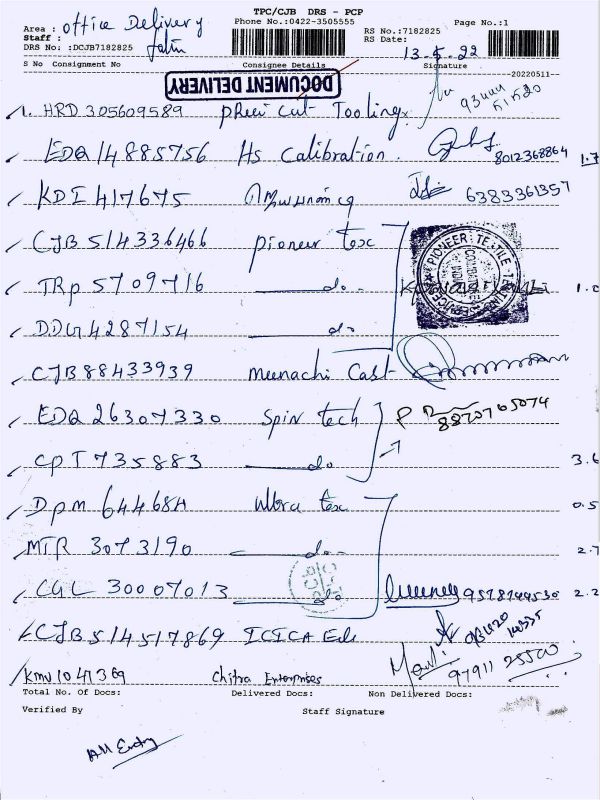 TPC/CJB DRS - PCP
Area : office Delivery Phone No.:0422-3505555 Page No.:1
Staff : Jatin RS No.:7182825
DRS No: :DCJB7182825 RS Date: 13-5-22
S No Consignment No Consignee Details Signature
--20220511--
DOCUMENT DELIVERY
1. HRD 305609589 Cut Tooling
EDQ 14885756 Hs Calibration. 8012368864 1.7
KDI 417675 6383361357
CJB 514336466 pioneer tex
TRP 5709716 do. 1.0
PIONEER TEXTILE
DDG 4287154 do
CJB 88433939 Meenachi Cast
EDQ 26307330 Spin tech
CPT 735883 do 3.6
DPM 644684 Ultra tex 0.5
MTR 3073190 do. 2.7
CGL 30007013 do 2.2
CJB 514517869
KMU 1041369 Chitra Enterprises
Total No. Of Docs: Delivered Docs: Non Delivered Docs:
Verified By Staff Signature
All Entry